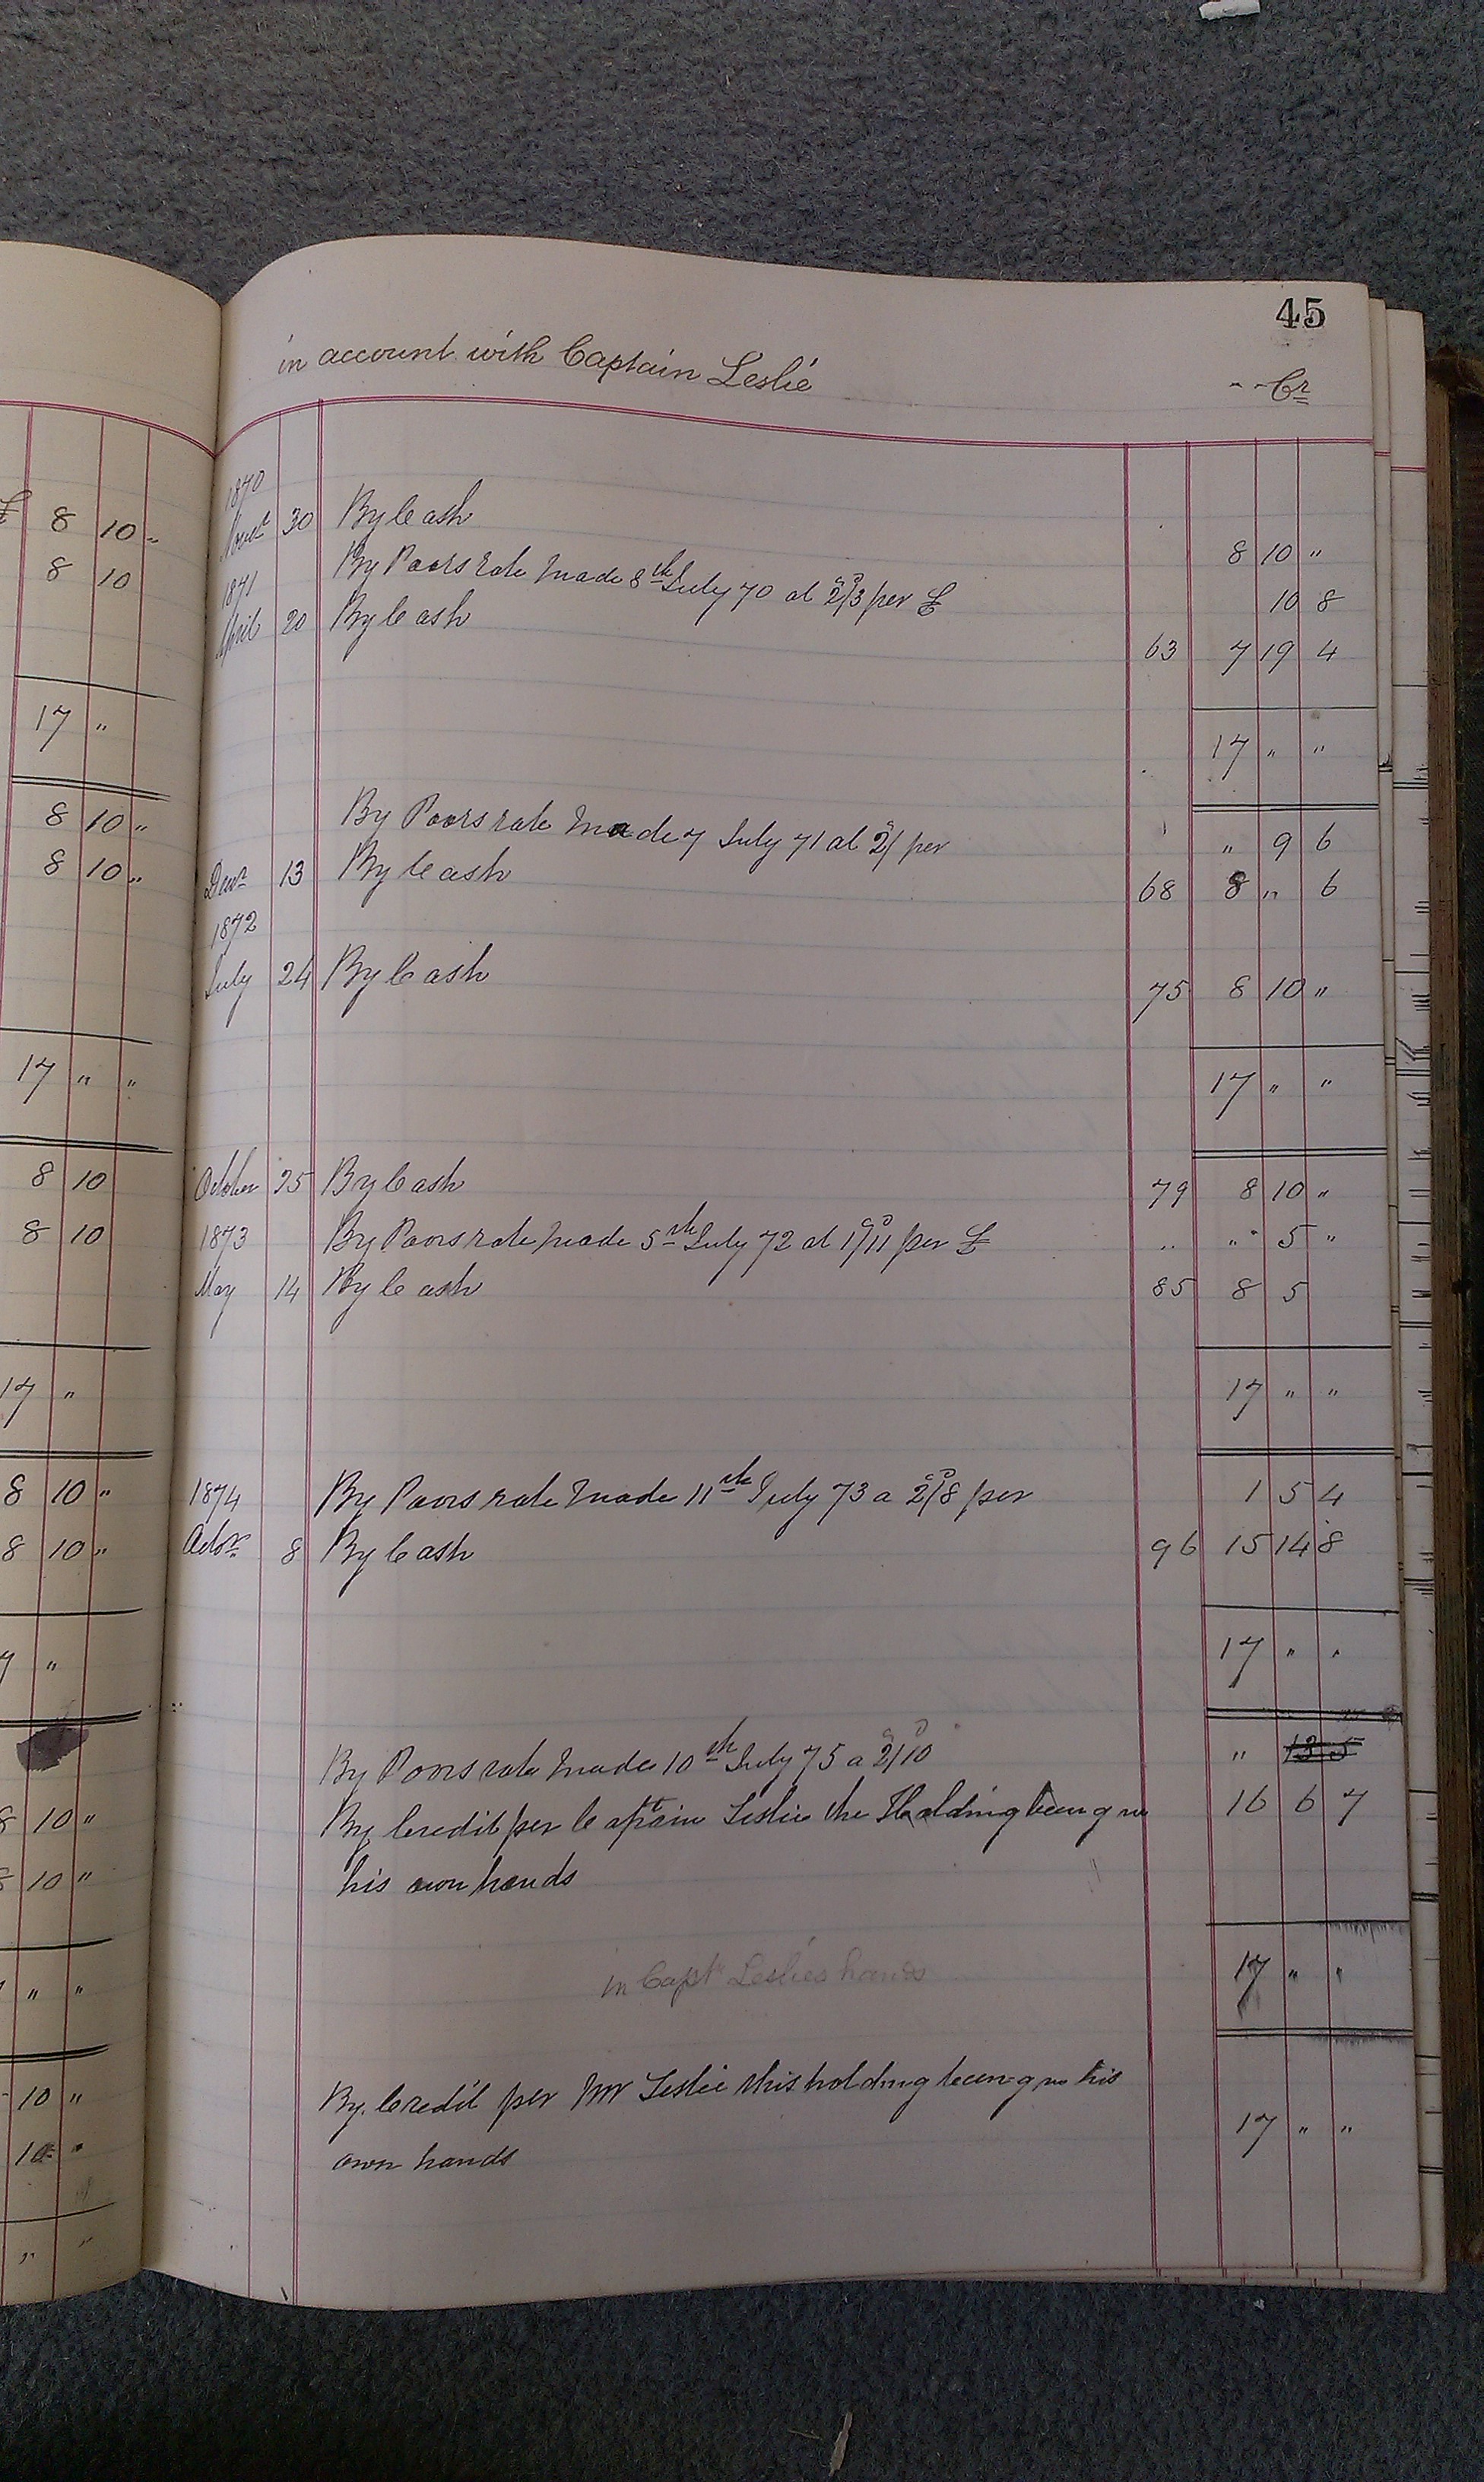 45
in account with Captain Leslie
Cr
1870
Novr 30 By Cash 8 10 "
By Poors rate made 8th July 70 at 2/3 per £ 10 8
1871
April 20 By Cash 63 7 19 4
17 " "
By Poors rate made 7 July 71 at 2/ per " 9 6
Decr 13 By Cash 68 8 " 6
1872
July 24 By Cash 75 8 10 "
17 " "
October 25 By Cash 79 8 10 "
1873 By Poors rate made 5th July 72 at 1/11 per £ " 5 "
May 14 By Cash 85 8 5
17 " "
1874 By Poors rate made 11th July 73 a 2/8 per 1 5 4
Octor 8 By Cash 96 15 14 8
17 " "
By Poors rate made 10th July 75 a 2/10 " 13 5
By Credit per Captain Leslie the Holding being in 16 6 7
his own hands
in Capt Leslies hands 17 " "
By Credit per Mr Leslie this holding being in his
own hands 17 " "
8 10 "
8 10
17 "
8 10 "
8 10 "
17 " "
8 10
8 10
17 "
8 10 "
8 10 "
7 "
8 10 "
8 10 "
" "
10 "
10 "
" "